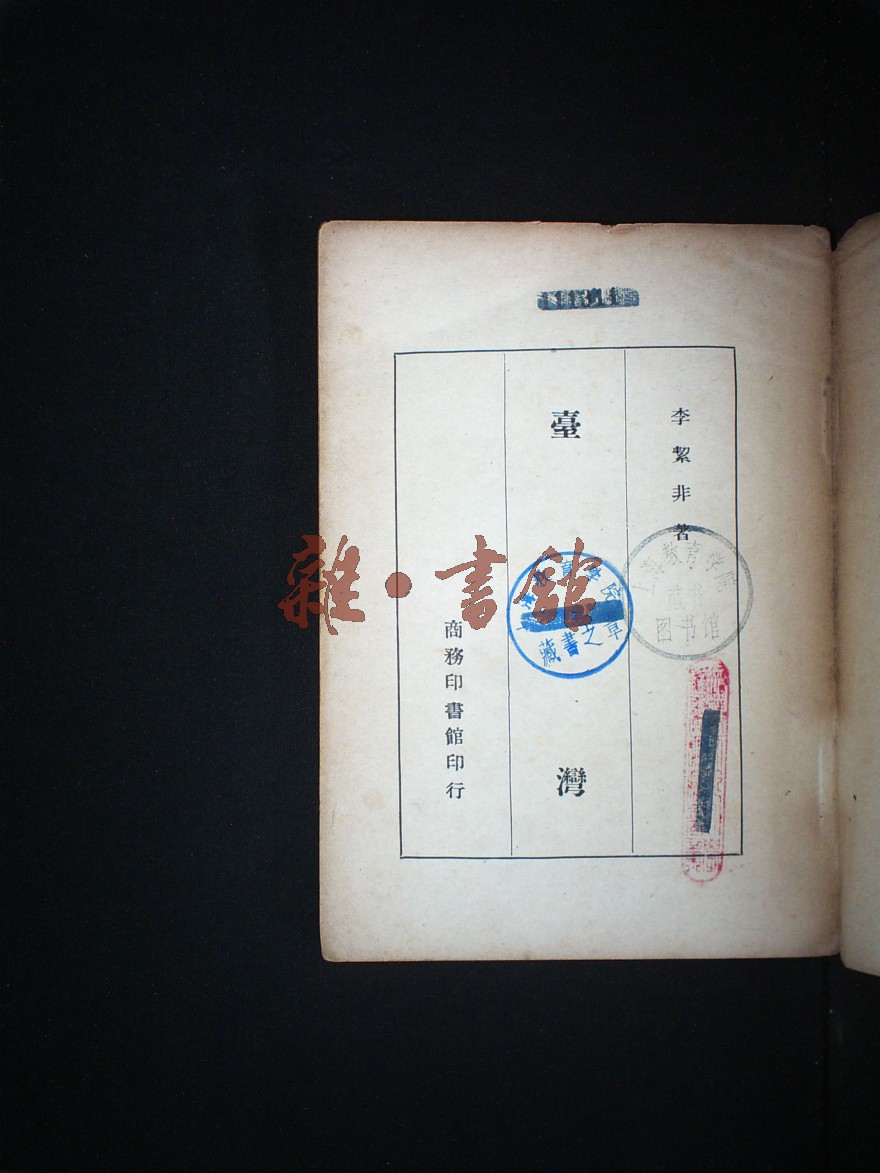 李絜非著
臺灣
商務印書館印行
雜·書館
上海教育学院
藏书
图书馆
藏書之章